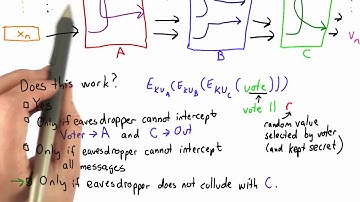 xn
A
B
C
vn
Does this work?
E KUA (E KUB (E KUC (vote)))
Yes
vote || r
Only if eavesdropper cannot intercept
Voter → A and C → Out
random value
selected by voter
(and kept secret)
Only if eavesdropper cannot intercept
all messages
→ Only if eavesdropper does not collude with C.